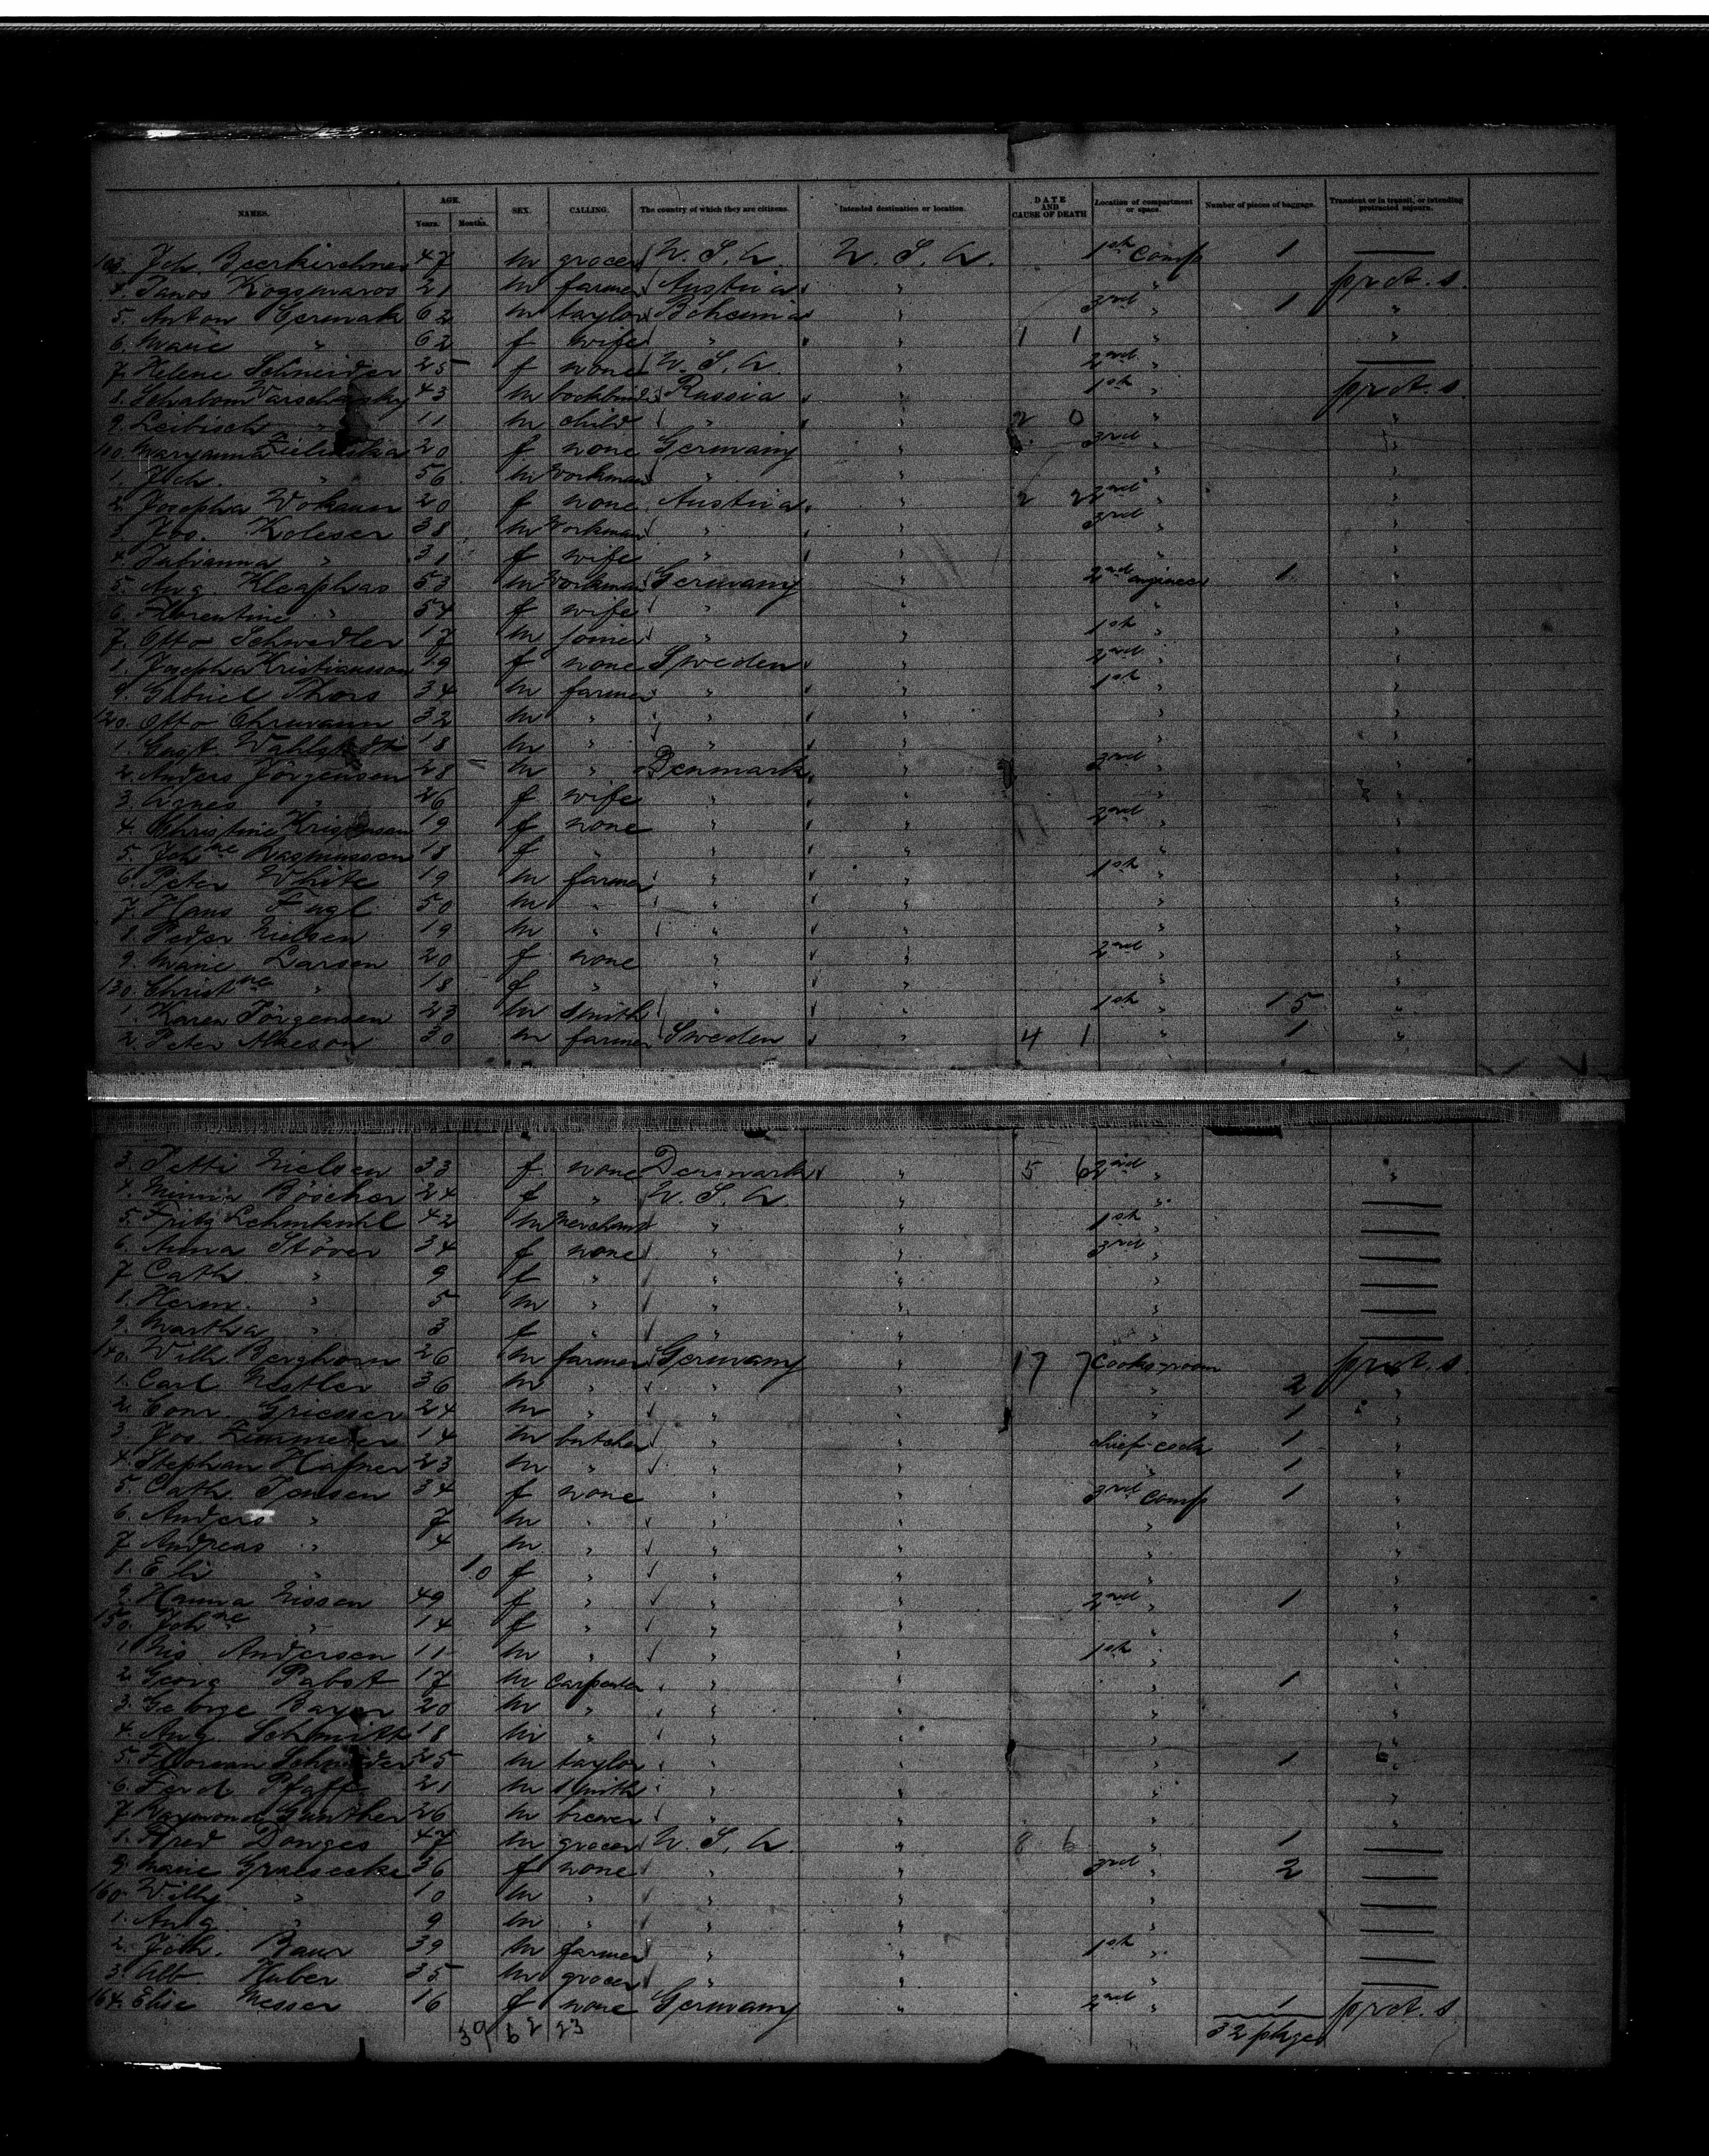 NAMES. AGE. Years. Months. SEX. CALLING. The country of which they are citizens. Intended destination or location. DATE AND CAUSE OF DEATH Location of compartment or space. Number of pieces of baggage. Transient or in transit, or intending protracted sojourn.
103. Joh. 47 m grocer U. S. A. U. S. A. 1st Comp 1 —
4. Janos 21 m farmer Austria " " prot. s.
5. Anton 62 m taylor Bohemia " 3rd " 1 "
6. Marie " 62 f wife " " 1 1 " "
7. Helene Schneider 25 f none U. S. A. " 2nd " —
8. 43 m bookbind Russia " 1st " prot. s.
9. Leibisch " 11 m child " " 2 0 " "
110. Maryanna 20 f none Germany " 3rd " "
1. Joh. " 56 m Workman " " " "
2. Josepha 20 f none Austria " 2 2 2nd " "
3. Jos. Koleser 38 m Workman " " 3rd " "
4. " 31 f wife " " " "
5. Aug. Kleophas 53 m Workman Germany " 2nd engineer 1 "
6. Florentine " 54 f wife " " " "
7. Otto Schwedler 17 m joiner " " 1st " "
8. Josepha Kristiansson 19 f none Sweden " 2nd " "
9. Gabriel Thors 34 m farmer " " 1st " "
120. Otto 32 m " " " " "
1. Gust. 18 m " " " " "
2. Anders Jörgensen 28 m " Denmark " 3rd " "
3. Agnes " 26 f wife " " " "
4. Christine 19 f none " " 2nd " "
5. Johne Rasmussen 18 f " " " " "
6. Peter White 19 m farmer " " 1st " "
7. Hans Fugl 50 m " " " " "
8. Peder Nielsen 19 m " " " " "
9. Marie Larsen 20 f none " " 2nd " "
130. Christne " 18 f " " " " "
1. Karen Jörgensen 23 m smith " " 1st " 15 "
2. Peter Akeson 30 m farmer Sweden " 4 1 " 1 "
3. Petti Nielsen 33 f none Denmark " 5 6 2nd " "
4. Minna Böscher 24 f " U. S. A. " " —
5. Fritz Lehmkuhl 42 m Merchant " " 1st " —
6. Anna Stöver 34 f none " " 3rd " —
7. Cath " 9 f " " " " —
8. Herm. " 5 m " " " " —
9. Martha " 3 f " " " " —
140. Wilh Berghorn 26 m farmer Germany " 17 7 Cooks-room prot. s.
1. Carl Nestler 36 m " " " " 2 "
2. Conr. Griesser 24 m " " " " 1 "
3. Jos 14 m butcher " " chief-cook 1 "
4. Stephan Hafner 23 m " " " " 1 "
5. Cath. Jensen 34 f none " " 3rd Comp 1 "
6. Anders " 7 m " " " " "
7. Andreas " 4 m " " " " "
8. Eli " 10 f " " " " "
9. Hanna Nissen 49 f " " " 2nd " 1 "
150. Johne " 14 f " " " " "
1. Nis Andersen 11 m " " " 1st " "
2. Georg Pabst 17 m carpenter " " " 1 "
3. George Bayer 20 m " " " " "
4. Aug Schmitt 18 m " " " " "
5. Florian Schneider 25 m taylor " " " 1 "
6. Ferd. Pfaff 21 m smith " " " "
7. Raymond Gunther 26 m brewer " " " "
8. Fred Donges 47 m grocer U. S. A. " 8 6 " 1 —
9. Marie 36 f none " " 3rd " 2 —
160. Willy " 10 m " " " " —
1. Aug " 9 m " " " " —
2. Joh. Baur 39 m farmer " " 1st " —
3. Alb. Huber 35 m grocer " " " —
164. Elise Messer 16 f none Germany " 2nd " 1 prot. s.
39 62 23 32 pkges